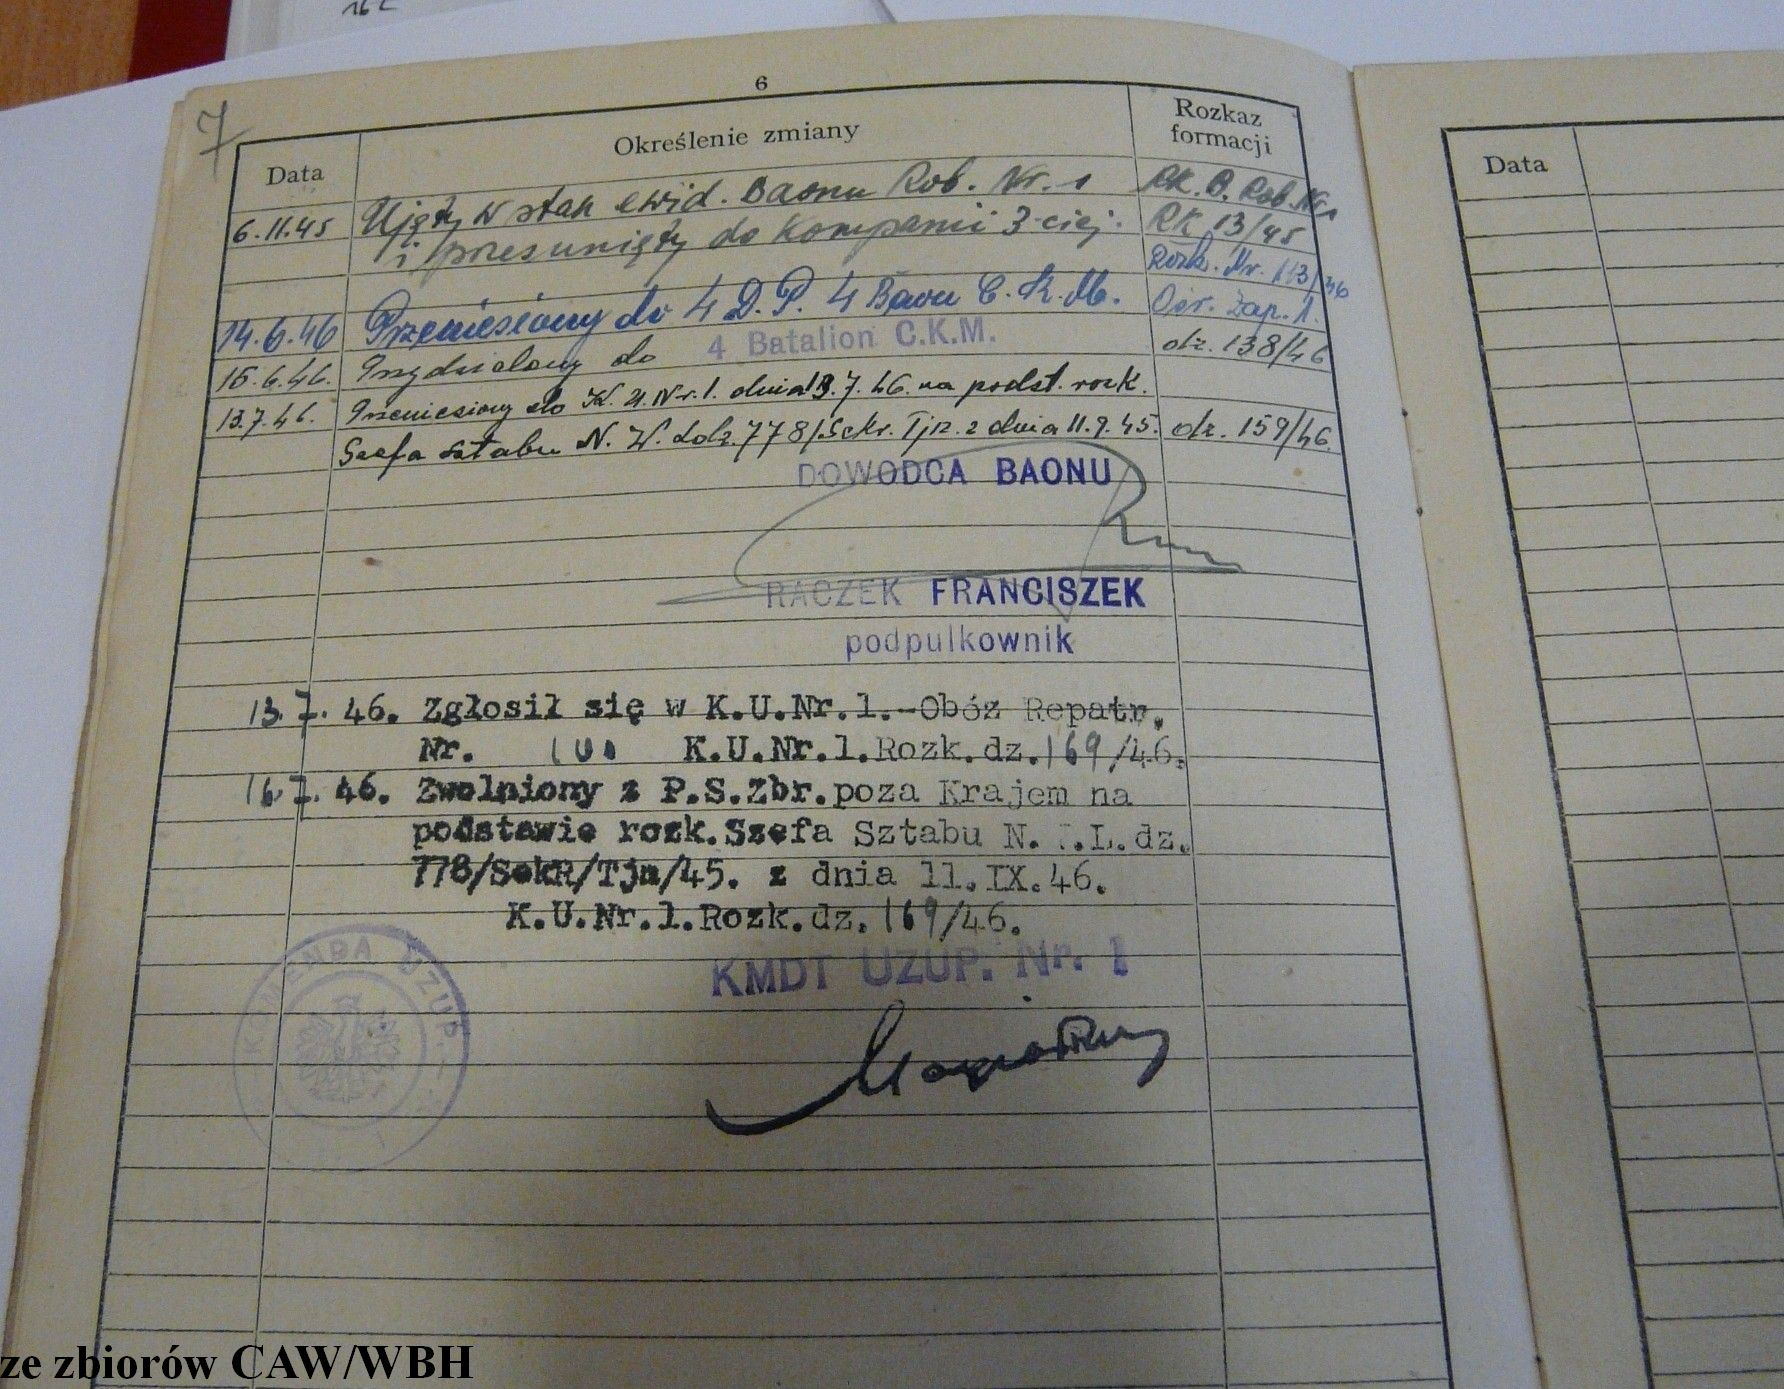 16 L
6
7
Data
Określenie zmiany
Rozkaz
formacji
Data
6.11.45 Ujęty w stan ewid. Baonu Rob. Nr. 1 RK. B. Rob. Nr 1
i przesunięty do Kompanii 3-ciej. RK 13/45
Rozk. Nr. 113/46
14.6.46 Przeniesiony do 4 D.P. 4 Baonu C.K.M. Ośr. Zap. 1.
15.6.46. Przydzielony do 4 Batalion C.K.M. dz. 138/46
13.7.46. Przeniesiony do K.U. Nr. 1. dnia 13.7.46. na podst. rozk.
Szefa sztabu N.W. L.dz. 778/Sekr. Tjn. z dnia 11.9.45. dz. 159/46.
DOWODCA BAONU
RACZEK FRANCISZEK
podpulkownik
13.7. 46. Zgłosił się w K.U.Nr.1.-Obóz Repatr.
Nr. K.U.Nr.1.Rozk.dz.169/46.
16.7. 46. Zwolniony z P.S.Zbr.poza Krajem na
podstawie rozk.Szefa Sztabu N. .L.dz.
778/SekR/Tjn/45. z dnia 11.IX.46.
K.U.Nr.1.Rozk.dz.169/46.
KOMENDA UZUP.
KMDT UZUP. Nr. 1
ze zbiorów CAW/WBH